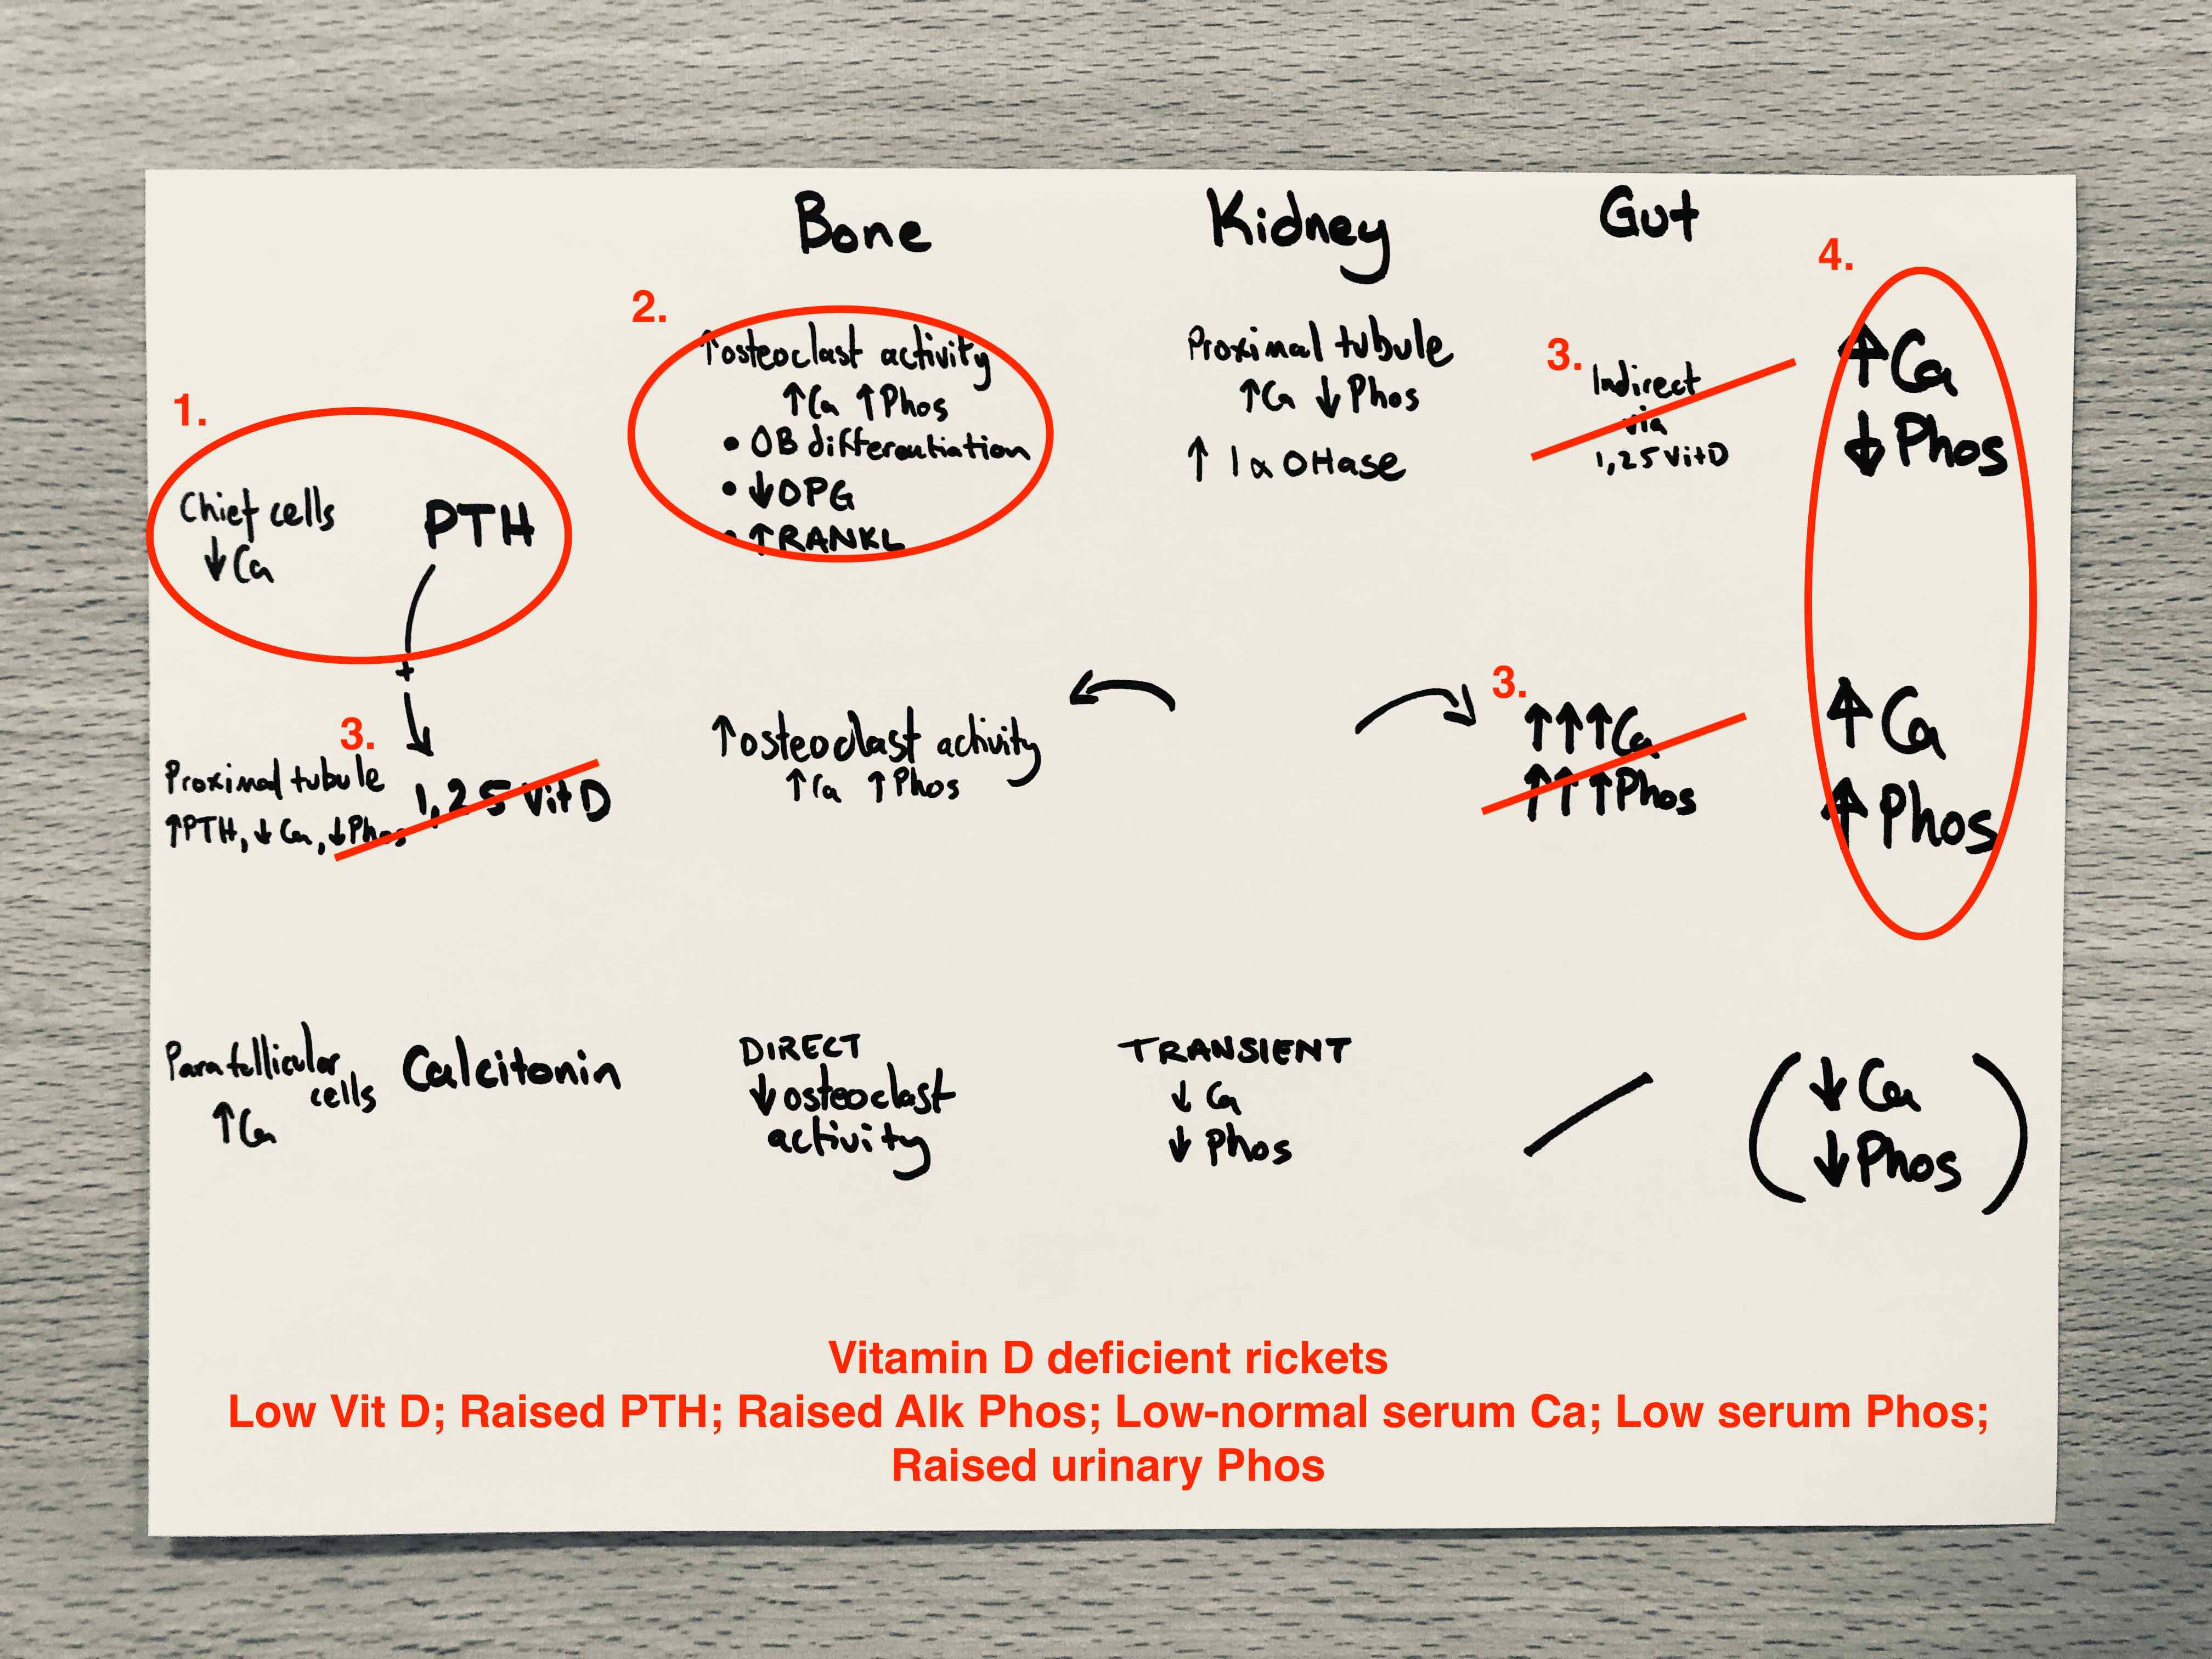 Bone Kidney Gut
4.
2.
↑osteoclast activity
↑Ca ↑Phos
• OB differentiation
• ↓OPG
• ↑RANKL
Proximal tubule
↑Ca ↓Phos
↑ 1α OHase
3.
Indirect
via
1,25 Vit D
↑Ca
↓Phos
1.
Chief cells
↓Ca
PTH
+
3.
Proximal tubule
↑PTH, ↓Ca, ↓Phos
1,25 Vit D
↑osteoclast activity
↑Ca ↑Phos
3.
↑↑↑Ca
↑↑↑Phos
↑Ca
↑Phos
Parafollicular
cells
↑Ca
Calcitonin
DIRECT
↓osteoclast
activity
TRANSIENT
↓Ca
↓Phos
(↓Ca
↓Phos)
Vitamin D deficient rickets
Low Vit D; Raised PTH; Raised Alk Phos; Low-normal serum Ca; Low serum Phos;
Raised urinary Phos